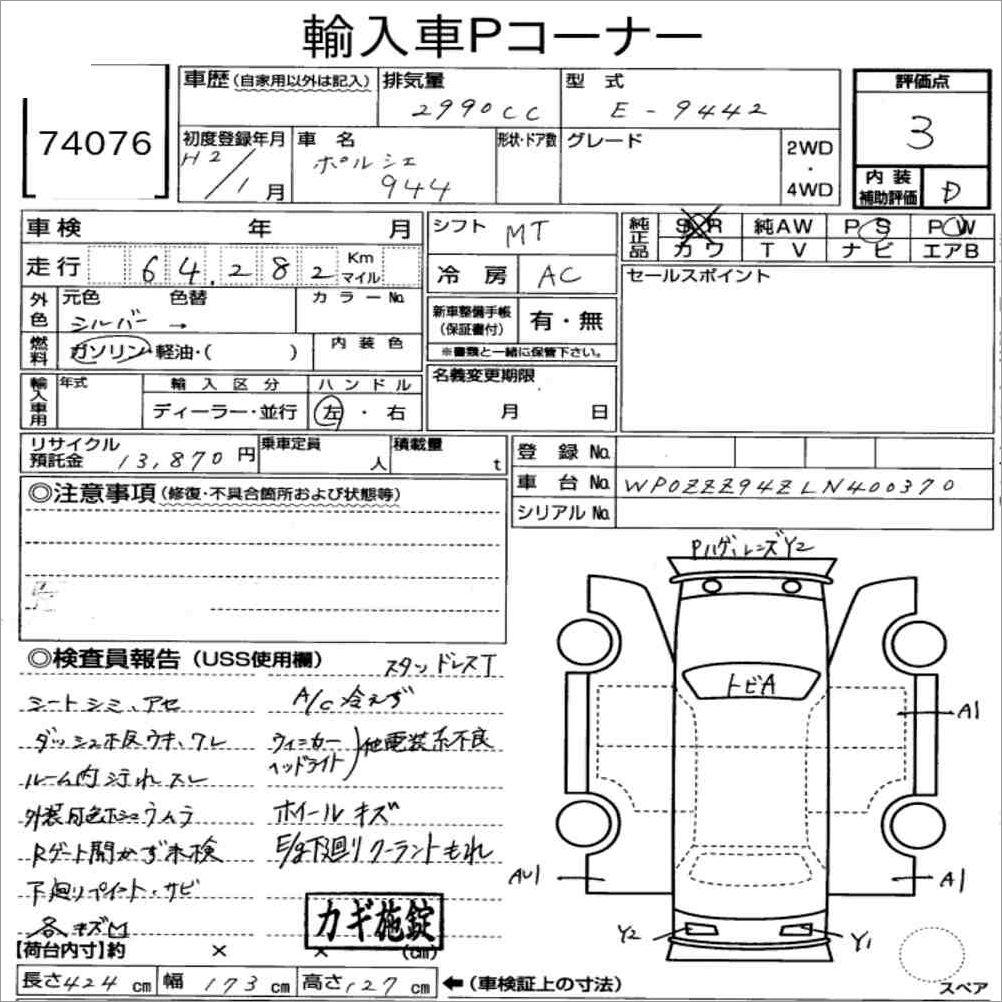 輸入車Pコーナー
74076
車歴(自家用以外は記入)
排気量
2990CC
型式
E-9442
評価点
3
初度登録年月
H2/1月
車名
ポルシェ
944
形状・ドア数
グレード
2WD
・
4WD
内装
補助評価
D
車検 年 月
走行 64.282 Km マイル
シフト MT
冷房 AC
純正品
SR 純AW PS PW
カワ TV ナビ エアB
セールスポイント
外色
元色 色替
シルバー →
カラーNo.
新車整備手帳
(保証書付)
有・無
※書類と一緒に保管下さい。
燃料
ガソリン・軽油・( )
内装色
輸入車用
年式
輸入区分
ディーラー・並行
ハンドル
左・右
名義変更期限
月 日
リサイクル
預託金 13,870円
乗車定員
人
積載量
t
登録No.
車台No. WP0ZZZ94ZLN400370
シリアルNo.
◎注意事項(修復・不具合箇所および状態等)
◎検査員報告(USS使用欄)
スタッドレスT
シートシミ、アセ
A/C冷えず
ダッシュホ反ウキ、ワレ
ウィンカー
ヘッドライト
)他電装系不良
ルーム内汚れスレ
外装
ホイールキズ
Rゲート開かず未検
E/g下廻りクーラントもれ
下廻りペイント・サビ
各キズ凹
カギ施錠
【荷台内寸】約 × × (cm)
長さ424cm 幅173cm 高さ127cm ←(車検証上の寸法)
Pハゲ、レンズY2
トビA
A1
AU1
A1
Y2
Y1
スペア